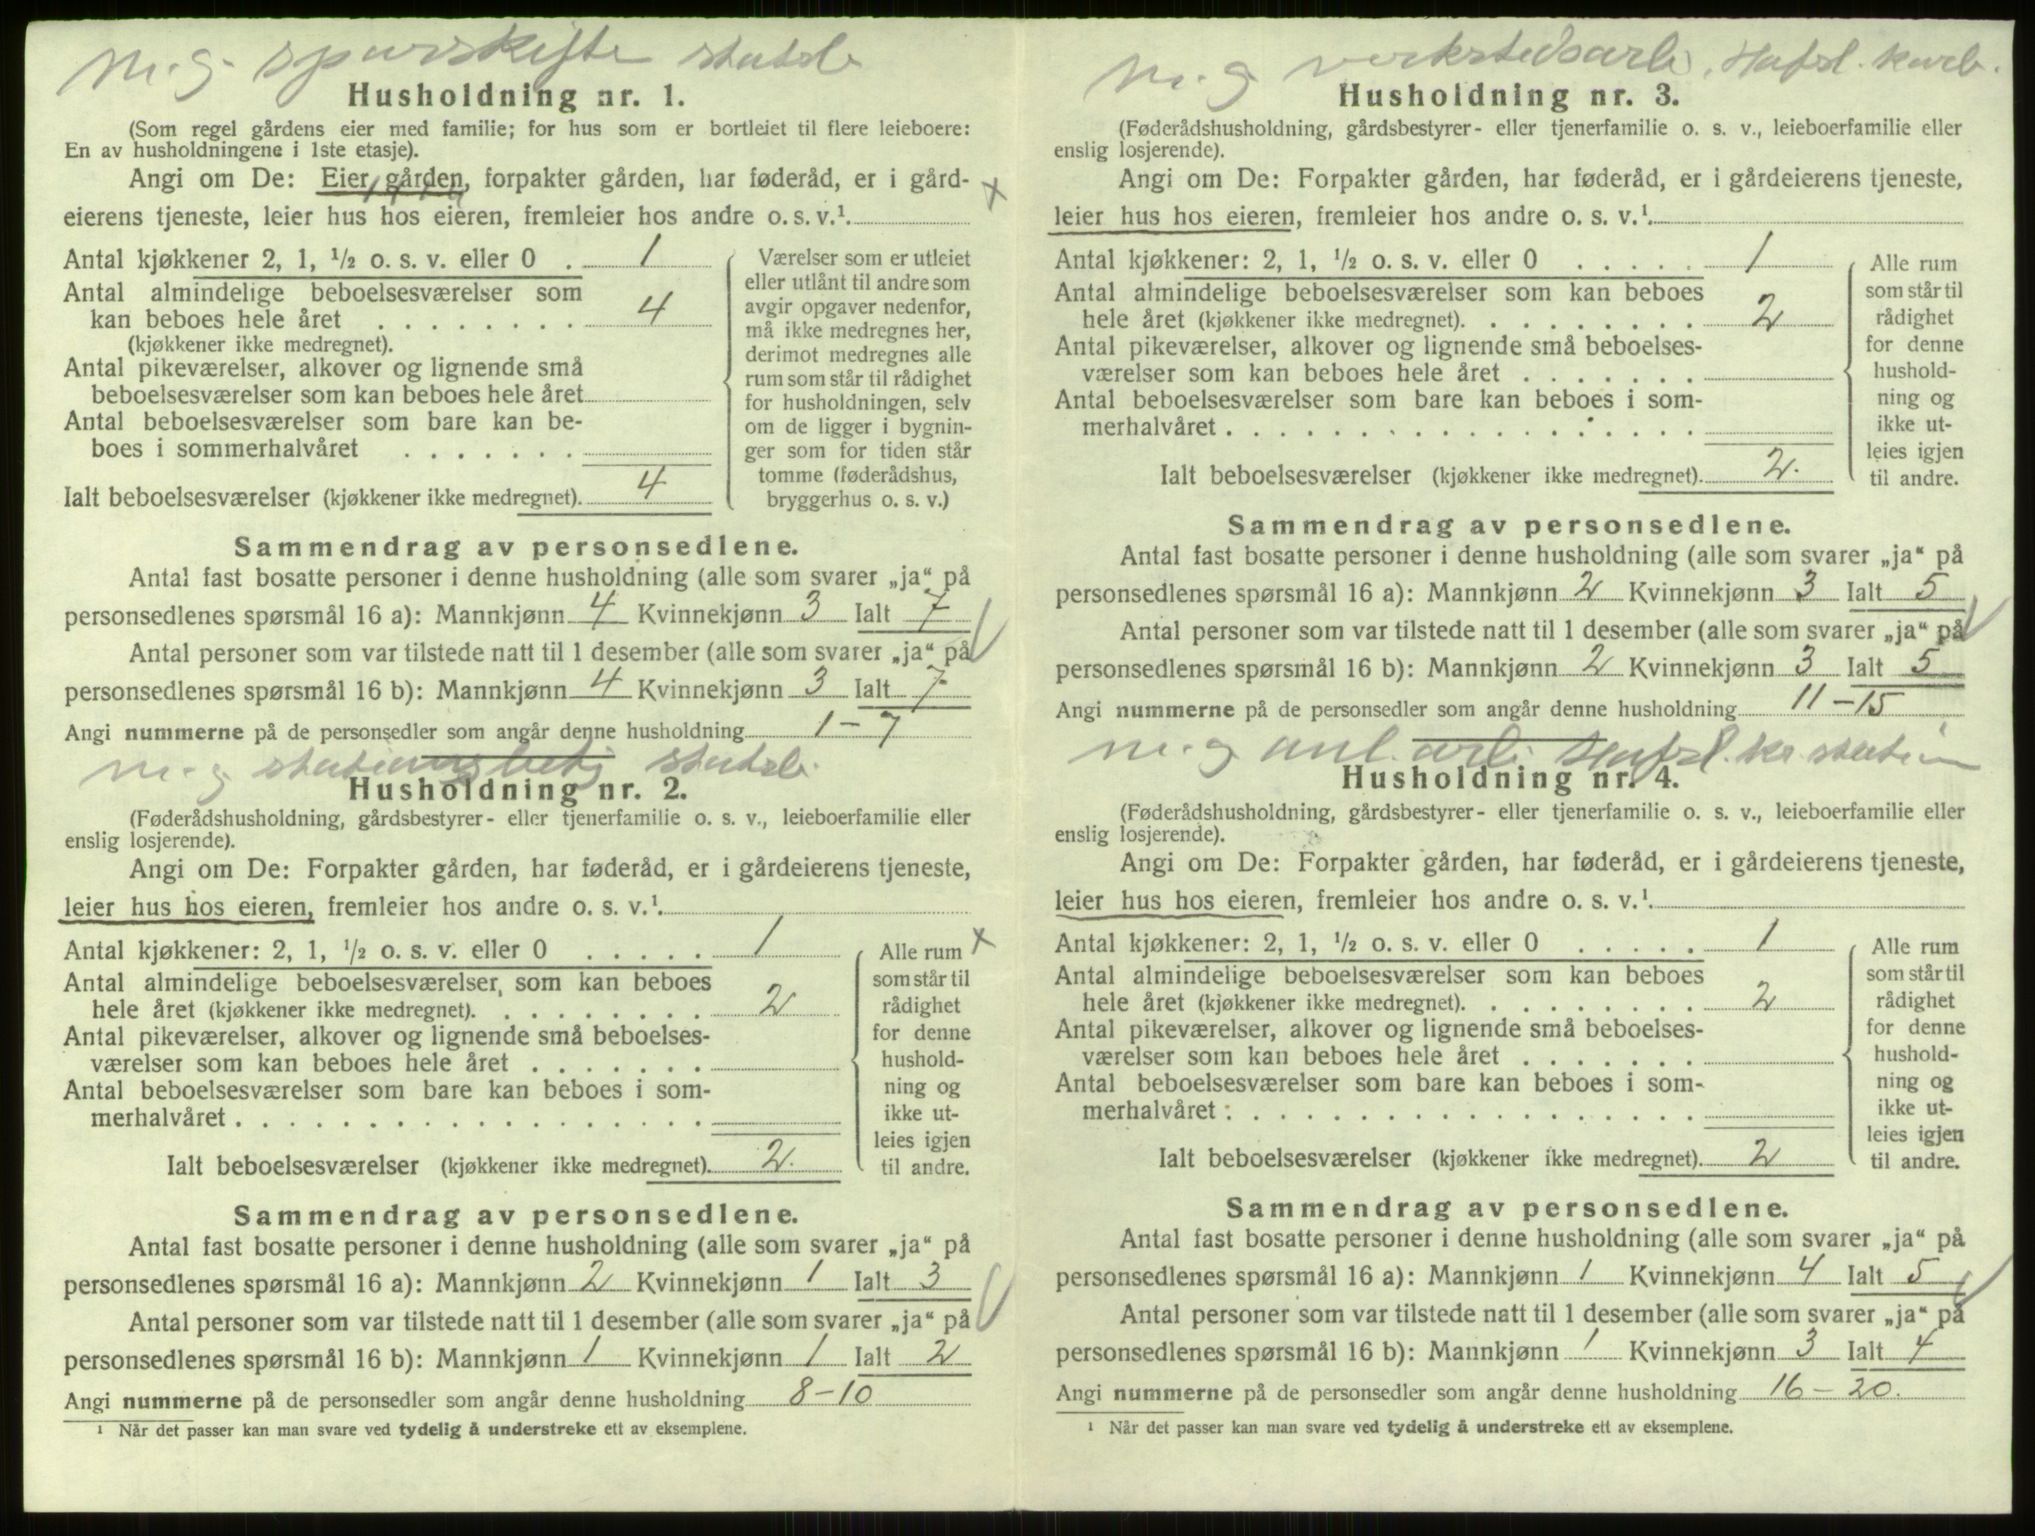 m. g. sporskifte statsb
Husholdning nr. 1.
(Som regel gårdens eier med familie; for hus som er bortleiet til flere leieboere:
En av husholdningene i 1ste etasje).
Angi om De: Eier gården, forpakter gården, har føderåd, er i gård-
eierens tjeneste, leier hus hos eieren, fremleier hos andre o. s. v.¹
Antal kjøkkener 2, 1, ½ o. s. v. eller 0 . 1
Antal almindelige beboelsesværelser som
kan beboes hele året . . . . . . . . 4
(kjøkkener ikke medregnet).
Antal pikeværelser, alkover og lignende små
beboelsesværelser som kan beboes hele året
Antal beboelsesværelser som bare kan be-
boes i sommerhalvåret . . . . . . .
Ialt beboelsesværelser (kjøkkener ikke medregnet). 4
Værelser som er utleiet
eller utlånt til andre som
avgir opgaver nedenfor,
må ikke medregnes her,
derimot medregnes alle
rum som står til rådighet
for husholdningen, selv
om de ligger i bygnin-
ger som for tiden står
tomme (føderådshus,
bryggerhus o. s. v.)
Sammendrag av personsedlene.
Antal fast bosatte personer i denne husholdning (alle som svarer „ja“ på
personsedlenes spørsmål 16 a): Mannkjønn 4 Kvinnekjønn 3 Ialt 7
Antal personer som var tilstede natt til 1 desember (alle som svarer „ja“ på
personsedlenes spørsmål 16 b): Mannkjønn 4 Kvinnekjønn 3 Ialt 7
Angi nummerne på de personsedler som angår denne husholdning 1 – 7
m. g. stationsbetj statsb.
Husholdning nr. 2.
(Føderådshusholdning, gårdsbestyrer- eller tjenerfamilie o. s. v., leieboerfamilie eller
enslig losjerende).
Angi om De: Forpakter gården, har føderåd, er i gårdeierens tjeneste,
leier hus hos eieren, fremleier hos andre o. s. v.¹
Antal kjøkkener: 2, 1, ½ o. s. v. eller 0 . . . . . 1
Antal almindelige beboelsesværelser, som kan beboes
hele året (kjøkkener ikke medregnet). . . . . . . . . 2
Antal pikeværelser, alkover og lignende små beboelses-
værelser som kan beboes hele året . . . . . . .
Antal beboelsesværelser som bare kan beboes i som-
merhalvåret . . . . . . . . . . . . . . . . . .
Ialt beboelsesværelser (kjøkkener ikke medregnet). 2.
Alle rum
som står til
rådighet
for denne
hushold-
ning og
ikke ut-
leies igjen
til andre.
Sammendrag av personsedlene.
Antal fast bosatte personer i denne husholdning (alle som svarer „ja“ på
personsedlenes spørsmål 16 a): Mannkjønn 2 Kvinnekjønn 1 Ialt 3
Antal personer som var tilstede natt til 1 desember (alle som svarer „ja“ på
personsedlenes spørsmål 16 b): Mannkjønn 1 Kvinnekjønn 1 Ialt 2
Angi nummerne på de personsedler som angår denne husholdning 8 – 10
¹ Når det passer kan man svare ved tydelig å understreke ett av eksemplene.
m. g verkstedsarb. Hafsl. karb.
Husholdning nr. 3.
(Føderådshusholdning, gårdsbestyrer- eller tjenerfamilie o. s. v., leieboerfamilie eller
enslig losjerende).
Angi om De: Forpakter gården, har føderåd, er i gårdeierens tjeneste,
leier hus hos eieren, fremleier hos andre o. s. v.¹
Antal kjøkkener: 2, 1, ½ o. s. v. eller 0 . . . . . 1
Antal almindelige beboelsesværelser som kan beboes
hele året (kjøkkener ikke medregnet). . . . . . . . . 2
Antal pikeværelser, alkover og lignende små beboelses-
værelser som kan beboes hele året . . . . . . .
Antal beboelsesværelser som bare kan beboes i som-
merhalvåret . . . . . . . . . . . . . . . . . .
Ialt beboelsesværelser (kjøkkener ikke medregnet). 2.
Alle rum
som står til
rådighet
for denne
hushold-
ning og
ikke ut-
leies igjen
til andre.
Sammendrag av personsedlene.
Antal fast bosatte personer i denne husholdning (alle som svarer „ja“ på
personsedlenes spørsmål 16 a): Mannkjønn 2 Kvinnekjønn 3 Ialt 5
Antal personer som var tilstede natt til 1 desember (alle som svarer „ja“ på
personsedlenes spørsmål 16 b): Mannkjønn 2 Kvinnekjønn 3 Ialt 5
Angi nummerne på de personsedler som angår denne husholdning 11 – 15
m. g anl. arb. Hafsl. kr. station
Husholdning nr. 4.
(Føderådshusholdning, gårdsbestyrer- eller tjenerfamilie o. s. v., leieboerfamilie eller
enslig losjerende).
Angi om De: Forpakter gården, har føderåd, er i gårdeierens tjeneste,
leier hus hos eieren, fremleier hos andre o. s. v.¹
Antal kjøkkener: 2, 1, ½ o. s. v. eller 0 . . . . . 1
Antal almindelige beboelsesværelser som kan beboes
hele året (kjøkkener ikke medregnet). . . . . . . . . 2
Antal pikeværelser, alkover og lignende små beboelses-
værelser som kan beboes hele året . . . . . . .
Antal beboelsesværelser som bare kan beboes i som-
merhalvåret . . . . . . . . . . . . . . . . . .
Ialt beboelsesværelser (kjøkkener ikke medregnet). 2
Alle rum
som står til
rådighet
for denne
hushold-
ning og
ikke ut-
leies igjen
til andre.
Sammendrag av personsedlene.
Antal fast bosatte personer i denne husholdning (alle som svarer „ja“ på
personsedlenes spørsmål 16 a): Mannkjønn 1 Kvinnekjønn 4 Ialt 5
Antal personer som var tilstede natt til 1 desember (alle som svarer „ja“ på
personsedlenes spørsmål 16 b): Mannkjønn 1 Kvinnekjønn 3 Ialt 4
Angi nummerne på de personsedler som angår denne husholdning 16 – 20.
¹ Når det passer kan man svare ved tydelig å understreke ett av eksemplene.